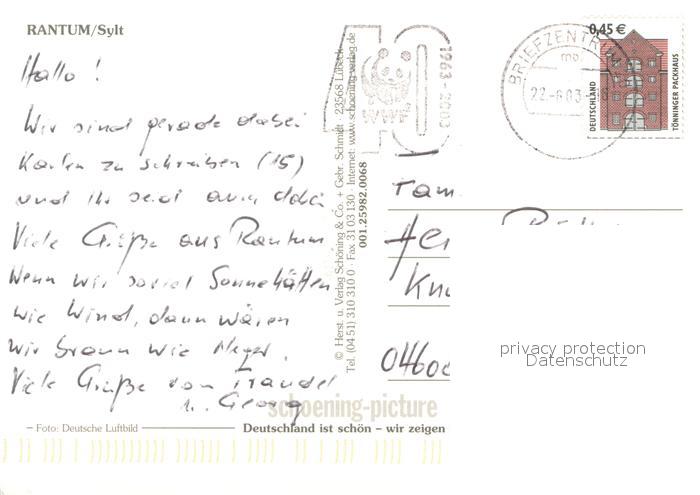 RANTUM/Sylt
Hallo !
Wir sind gerade dabei
Karten zu schreiben (15)
und Ihr seid auch dabei
Viele Grüße aus Rantum
Wenn wir soviel Sonne hätten
wie Wind, dann wären
wir braun wie Neger.
Viele Grüße von Traudel
u. Georg
– Foto: Deutsche Luftbild
schoening-picture
Deutschland ist schön – wir zeigen
© Herst. u. Verlag Schöning & Co. + Gebr. Schmidt 23568 Lübeck
Tel. (04 51) 310 310 0 · Fax 31 03 130 · Internet: www.schoening-verlag.de
001.25982.0068
40
1963-2003
WWF
BRIEFZENTRUM
mb
22.-6.03
0,45 €
DEUTSCHLAND
TÖNNINGER PACKHAUS
Fam.
0460
privacy protection
Datenschutz